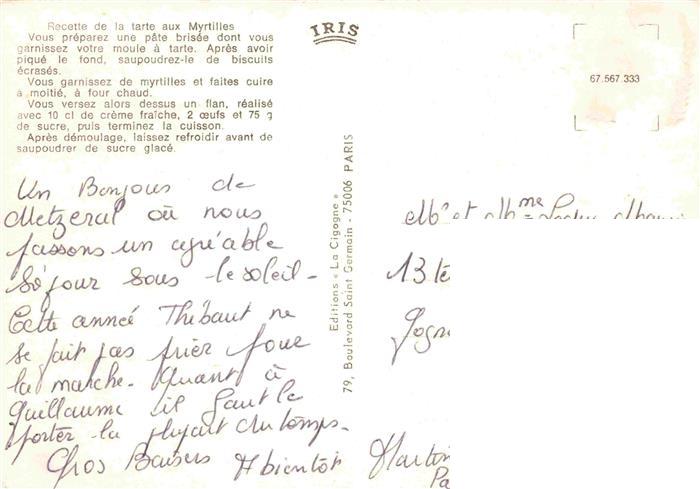 Recette de la tarte aux Myrtilles
Vous préparez une pâte brisée dont vous
garnissez votre moule à tarte. Après avoir
piqué le fond, saupoudrez-le de biscuits
écrasés.
Vous garnissez de myrtilles et faites cuire
à moitié, à four chaud.
Vous versez alors dessus un flan, réalisé
avec 10 cl de crème fraîche, 2 œufs et 75 g
de sucre, puis terminez la cuisson.
Après démoulage, laissez refroidir avant de
saupoudrer de sucre glacé.
IRIS
67.567.333
Un Bonjour de
Metzeral où nous
passons un agréable
séjour sous le soleil -
Cette année Thibaut ne
se fait pas prier pour
la marche. Quant à
Guillaume il faut le
porter la plupart du temps.
Gros Baisers A bientôt
Martin
Pa
Editions « La Cigogne »
79, Boulevard Saint Germain - 75006 PARIS
Mr et Mme
13 te